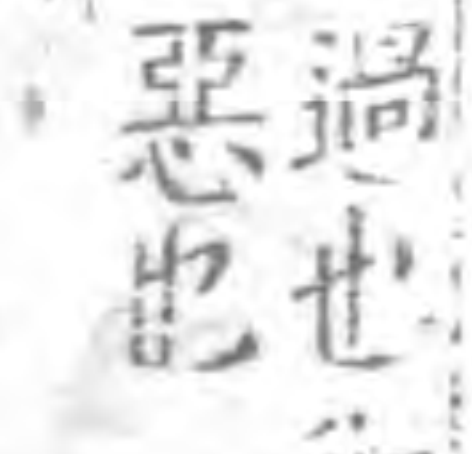 過也
惡也